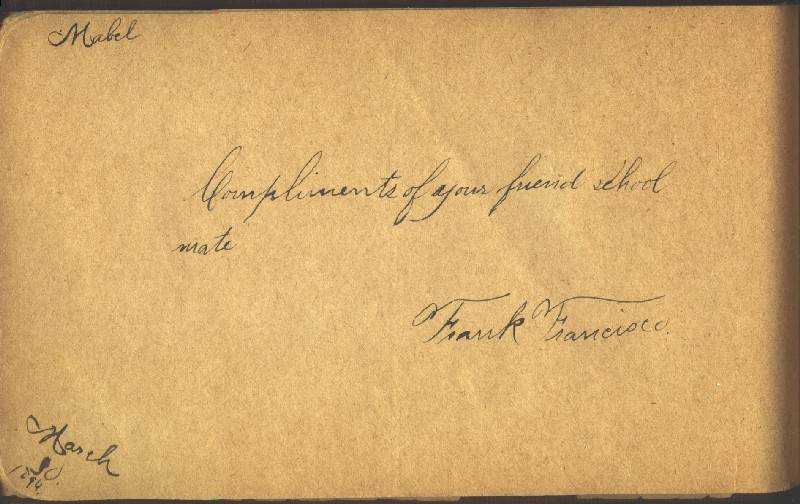 Mabel
Compliments of your friend school
mate
Frank Francisco.
March
1894.